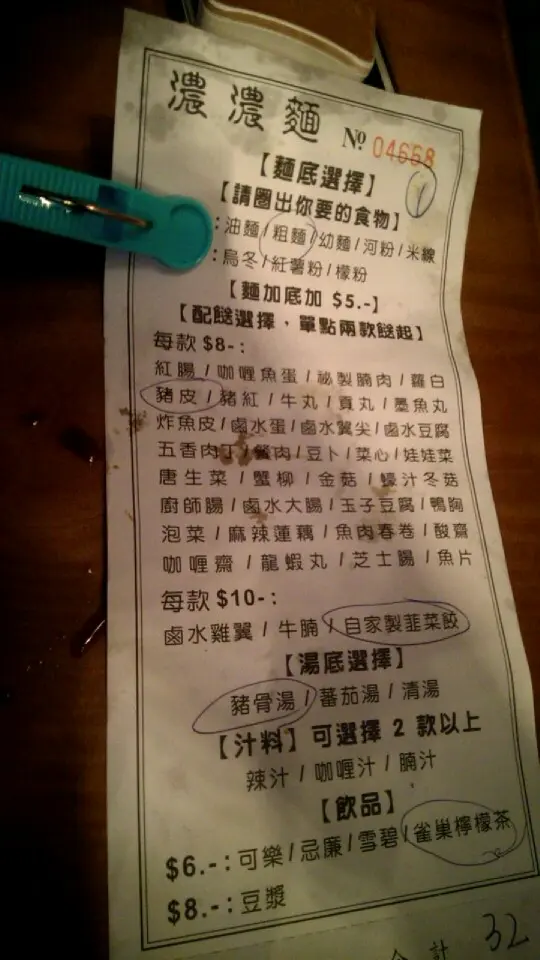 濃濃麵 Nº 04668
【麵底選擇】 1
【請圈出你要的食物】
：油麵/粗麵/幼麵/河粉/米線
：烏冬/紅薯粉/檬粉
【麵加底加 $5.-】
【配餸選擇，單點兩款餸起】
每款 $8-：
紅腸/咖喱魚蛋/祕製腩肉/蘿白
豬皮/豬紅/牛丸/貢丸/墨魚丸
炸魚皮/鹵水蛋/鹵水翼尖/鹵水豆腐
五香肉丁/餐肉/豆卜/菜心/娃娃菜
唐生菜/蟹柳/金菇/蠔汁冬菇
廚師腸/鹵水大腸/玉子豆腐/鴨胸
泡菜/麻辣蓮藕/魚肉春卷/酸齋
咖喱齋/龍蝦丸/芝士腸/魚片
每款 $10-：
鹵水雞翼/牛腩/自家製韮菜餃
【湯底選擇】
豬骨湯/蕃茄湯/清湯
【汁料】可選擇 2 款以上
辣汁/咖喱汁/腩汁
【飲品】
$6.-：可樂/忌廉/雪碧/雀巢檸檬茶
$8.-：豆漿
合計 32